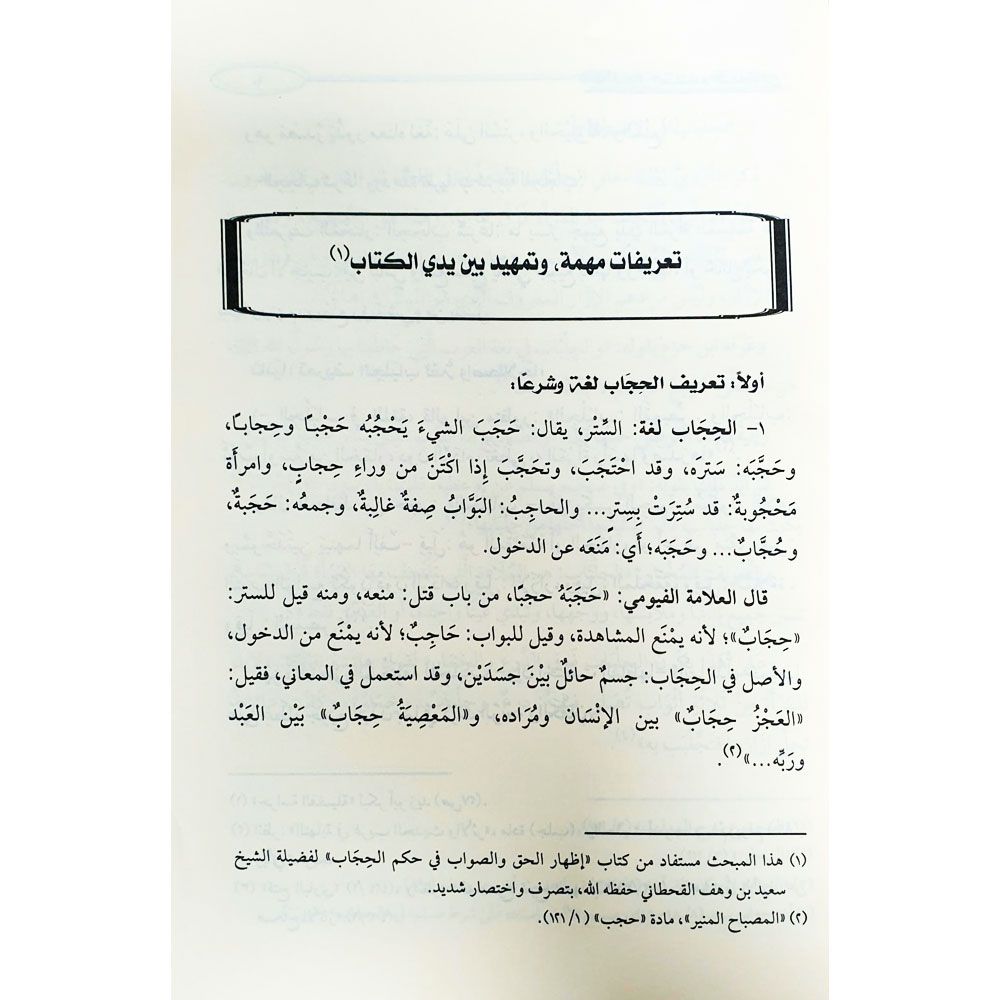 تعريفات مهمة، وتمهيد بين يدي الكتاب(١)
أولاً: تعريف الحِجَاب لغة وشرعًا:
١- الحِجَاب لغة: السِّتْر، يقال: حَجَبَ الشيءَ يَحْجُبُه حَجْبًا وحِجابًا،
وحَجَّبَه: سَترَه، وقد احْتَجَبَ، وتحَجَّبَ إِذا اكْتَنَّ من وراءِ حِجابٍ، وامرأَة
مَحْجُوبةٌ: قد سُتِرَتْ بِسِترٍ... والحاجِبُ: البَوَّابُ صِفةٌ غالِبةٌ، وجمعُه: حَجَبةٌ،
وحُجَّابٌ... وحَجَبَه؛ أي: مَنَعَه عن الدخول.
قال العلامة الفيومي: «حَجَبَهُ حجبًا، من باب قتل: منعه، ومنه قيل للستر:
«حِجَابٌ»؛ لأنه يمْنَع المشاهدة، وقيل للبواب: حَاجِبٌ؛ لأنه يمْنَع من الدخول،
والأصل في الحِجَاب: جسمٌ حائلٌ بيْنَ جسَدَيْن، وقد استعمل في المعاني، فقيل:
«العَجْزُ حِجَابٌ» بين الإنْسَان ومُرَاده، و«المَعْصِيَةُ حِجَابٌ» بَيْن العَبْد
ورَبِّه...»(٢).
(١) هذا المبحث مستفاد من كتاب «إظهار الحق والصواب في حكم الحِجَاب» لفضيلة الشيخ
سعيد بن وهف القحطاني حفظه الله، بتصرف واختصار شديد.
(٢) «المصباح المنير»، مادة «حجب» (١/ ١٢١).